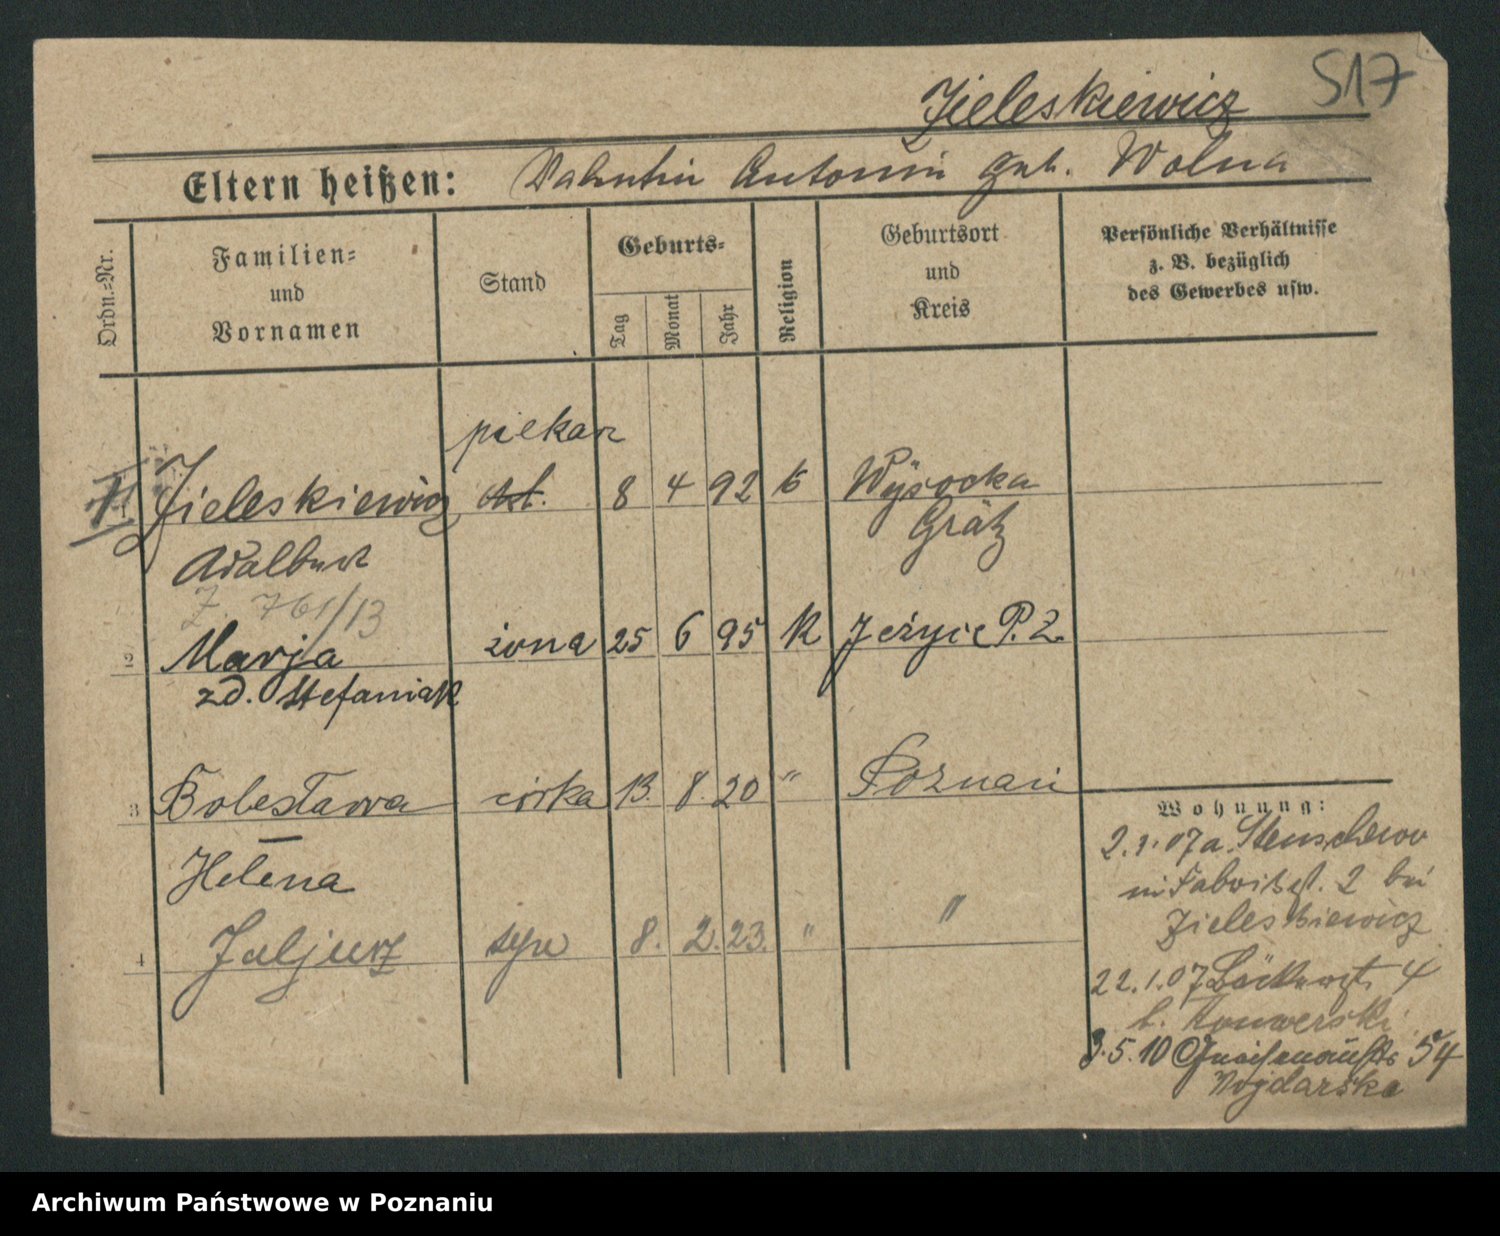 517
Zieleskiewicz
Eltern heißen: Valentin Antonin geb. Wolna
Ordn.=Nr.
Familien=
und
Vornamen
Stand
Geburts=
Tag
Monat
Jahr
Religion
Geburtsort
und
Kreis
Persönliche Verhältnisse
z. B. bezüglich
des Gewerbes usw.
piekarz
Zieleskiewicz 8 4 92 k Wysocka
Adalbert Grätz
Z. 761/13
2 Marja żona 25 6 95 K Jeżyce P. Z.
zd. Stefaniak
3 Bolesława córka 13. 8. 20 " Poznań
Helena
4 Juljusz syn 8. 2. 23. " "
Wohnung:
2.1.07 a. Stenschewo
in Fabrikst. 2 bei
Zieleskiewicz
22.1.07 Bäckerst. 4
b. Konwerski
3.5.10 Gneisenaustr 54
Wojdarska